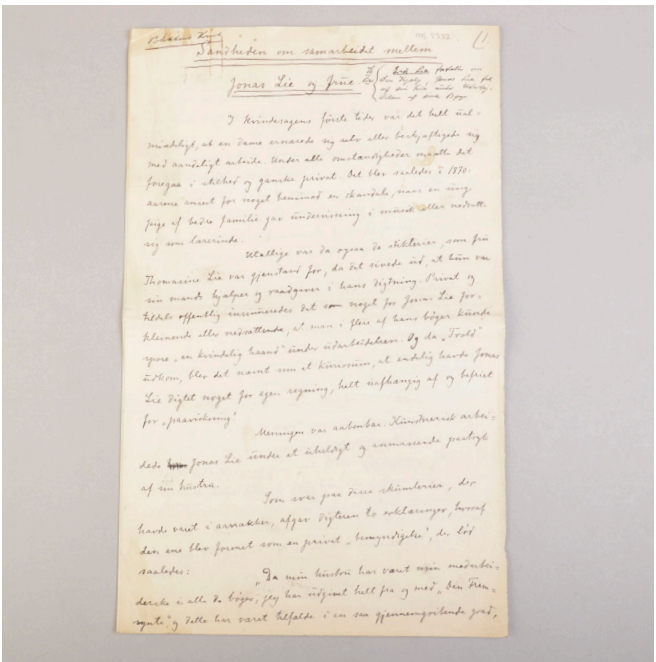 Sandheden om samarbeidet mellem
Jonas Lie og frue.
I kvindesagens første tider var det helt ual-
mindeligt, at en dame ernærede sig selv eller beskjæftigede sig
med aandeligt arbeide. Under alle omstændigheder maatte det
foregaa i stilhed og ganske privat. Det blev saaledes i 1870-
aarene anseet for noget henimod en skandale, naar en ung
pige af bedre familie gav undervisning i musik eller nedsatte
sig som lærerinde.
Utallige var da ogsaa de stiklerier, som fru
Thomasine Lie var gjenstand for, da det sivede ud, at hun var
sin mands hjælper og raadgiver i hans digtning. Privat og
tildels offentlig insinueredes det som noget for Jonas Lie for-
kleinende eller nedsættende, at man i flere af hans bøger kunde
spore „en kvindelig haand" under udarbeidelsen. Og da „Trold"
udkom, blev det nævnt som et kuriosum, at endelig havde Jonas
Lie digtet noget for egen regning, helt uafhængig af og befriet
for „paavirkning".
Meningen var aabenbar. Kunstnerisk arbei-
dede Jonas Lie under et uheldigt og anmassende paatryk
af sin hustru.
Som svar paa disse skumlerier, der
havde varet i aarrækker, afgav digteren to erklæringer, hvoraf
den ene blev formet som en privat „bemyndigelse", der lød
saaledes:
„Da min hustru har været min medarbei-
derske i alle de bøger, jeg har udgivet helt fra og med „Den Frem-
synte", og dette har været tilfælde i en saa gjennemgribende grad,